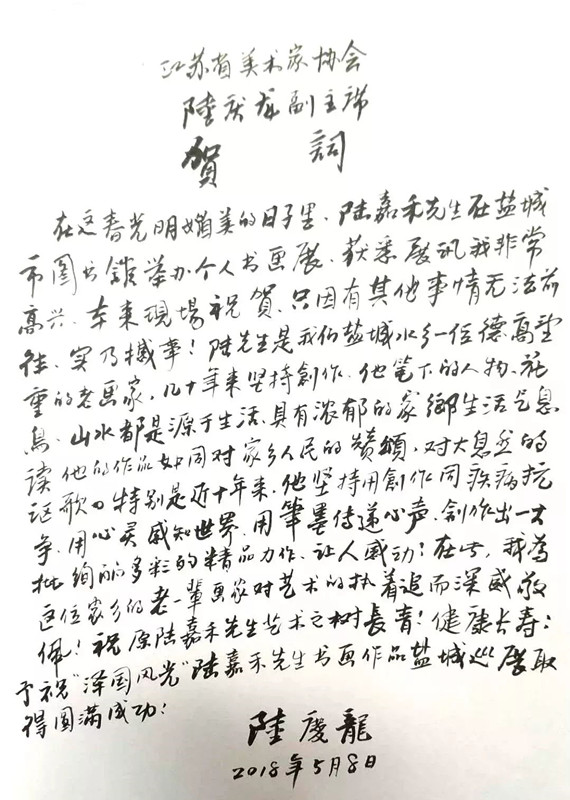 江苏省美术家协会
陆庆龙副主席
賀 詞
在这春光明媚美的日子里、陆嘉禾先生在盐城
市圖书館举办个人书画展、获悉展讯我非常
高兴、本来現場祝賀、只因有其他事情无法前
往、实乃撼事！陆先生是我们盐城水乡一位德高望
重的老画家，几十年来坚持創作、他笔下的人物、花
鳥、山水都是源于生活、具有浓郁的家鄉生活气息
读他的作品如同对家乡人民的赞頌，对大自然的
讴歌。特别是近十年来、他坚持用創作同疾病抗
争、用心灵感知世界、用筆墨传递心声、創作出一大
批绚丽多彩的精品力作、让人感动！在此，我為
这位家乡的老一輩画家对艺术的执着追而深感敬
佩！祝愿陆嘉禾先生艺术之树長青！健康长寿！
予祝“泽国风光”陆嘉禾先生书画作品盐城巡展取
得圆满成功！
陸慶龍
2018年5月8日